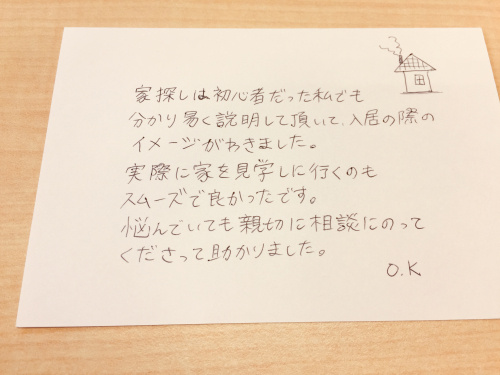 家探しは初心者だった私でも
分かり易く説明して頂いて、入居の際の
イメージがわきました。
実際に家を見学しに行くのも
スムーズで良かったです。
悩んでいても親切に相談にのって
くださって助かりました。
O.K